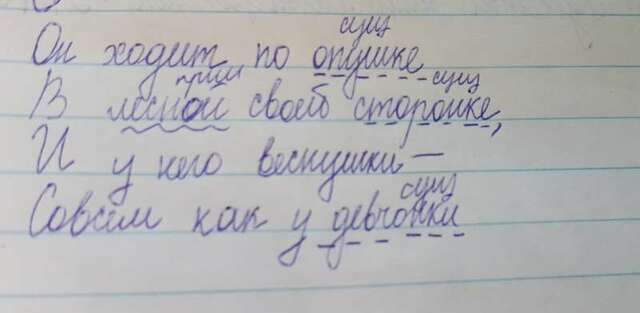 сущ
Он ходит по опушке
прил сущ
В лесной своей сторонке,
И у него веснушки —
сущ
Совсем как у девчонки